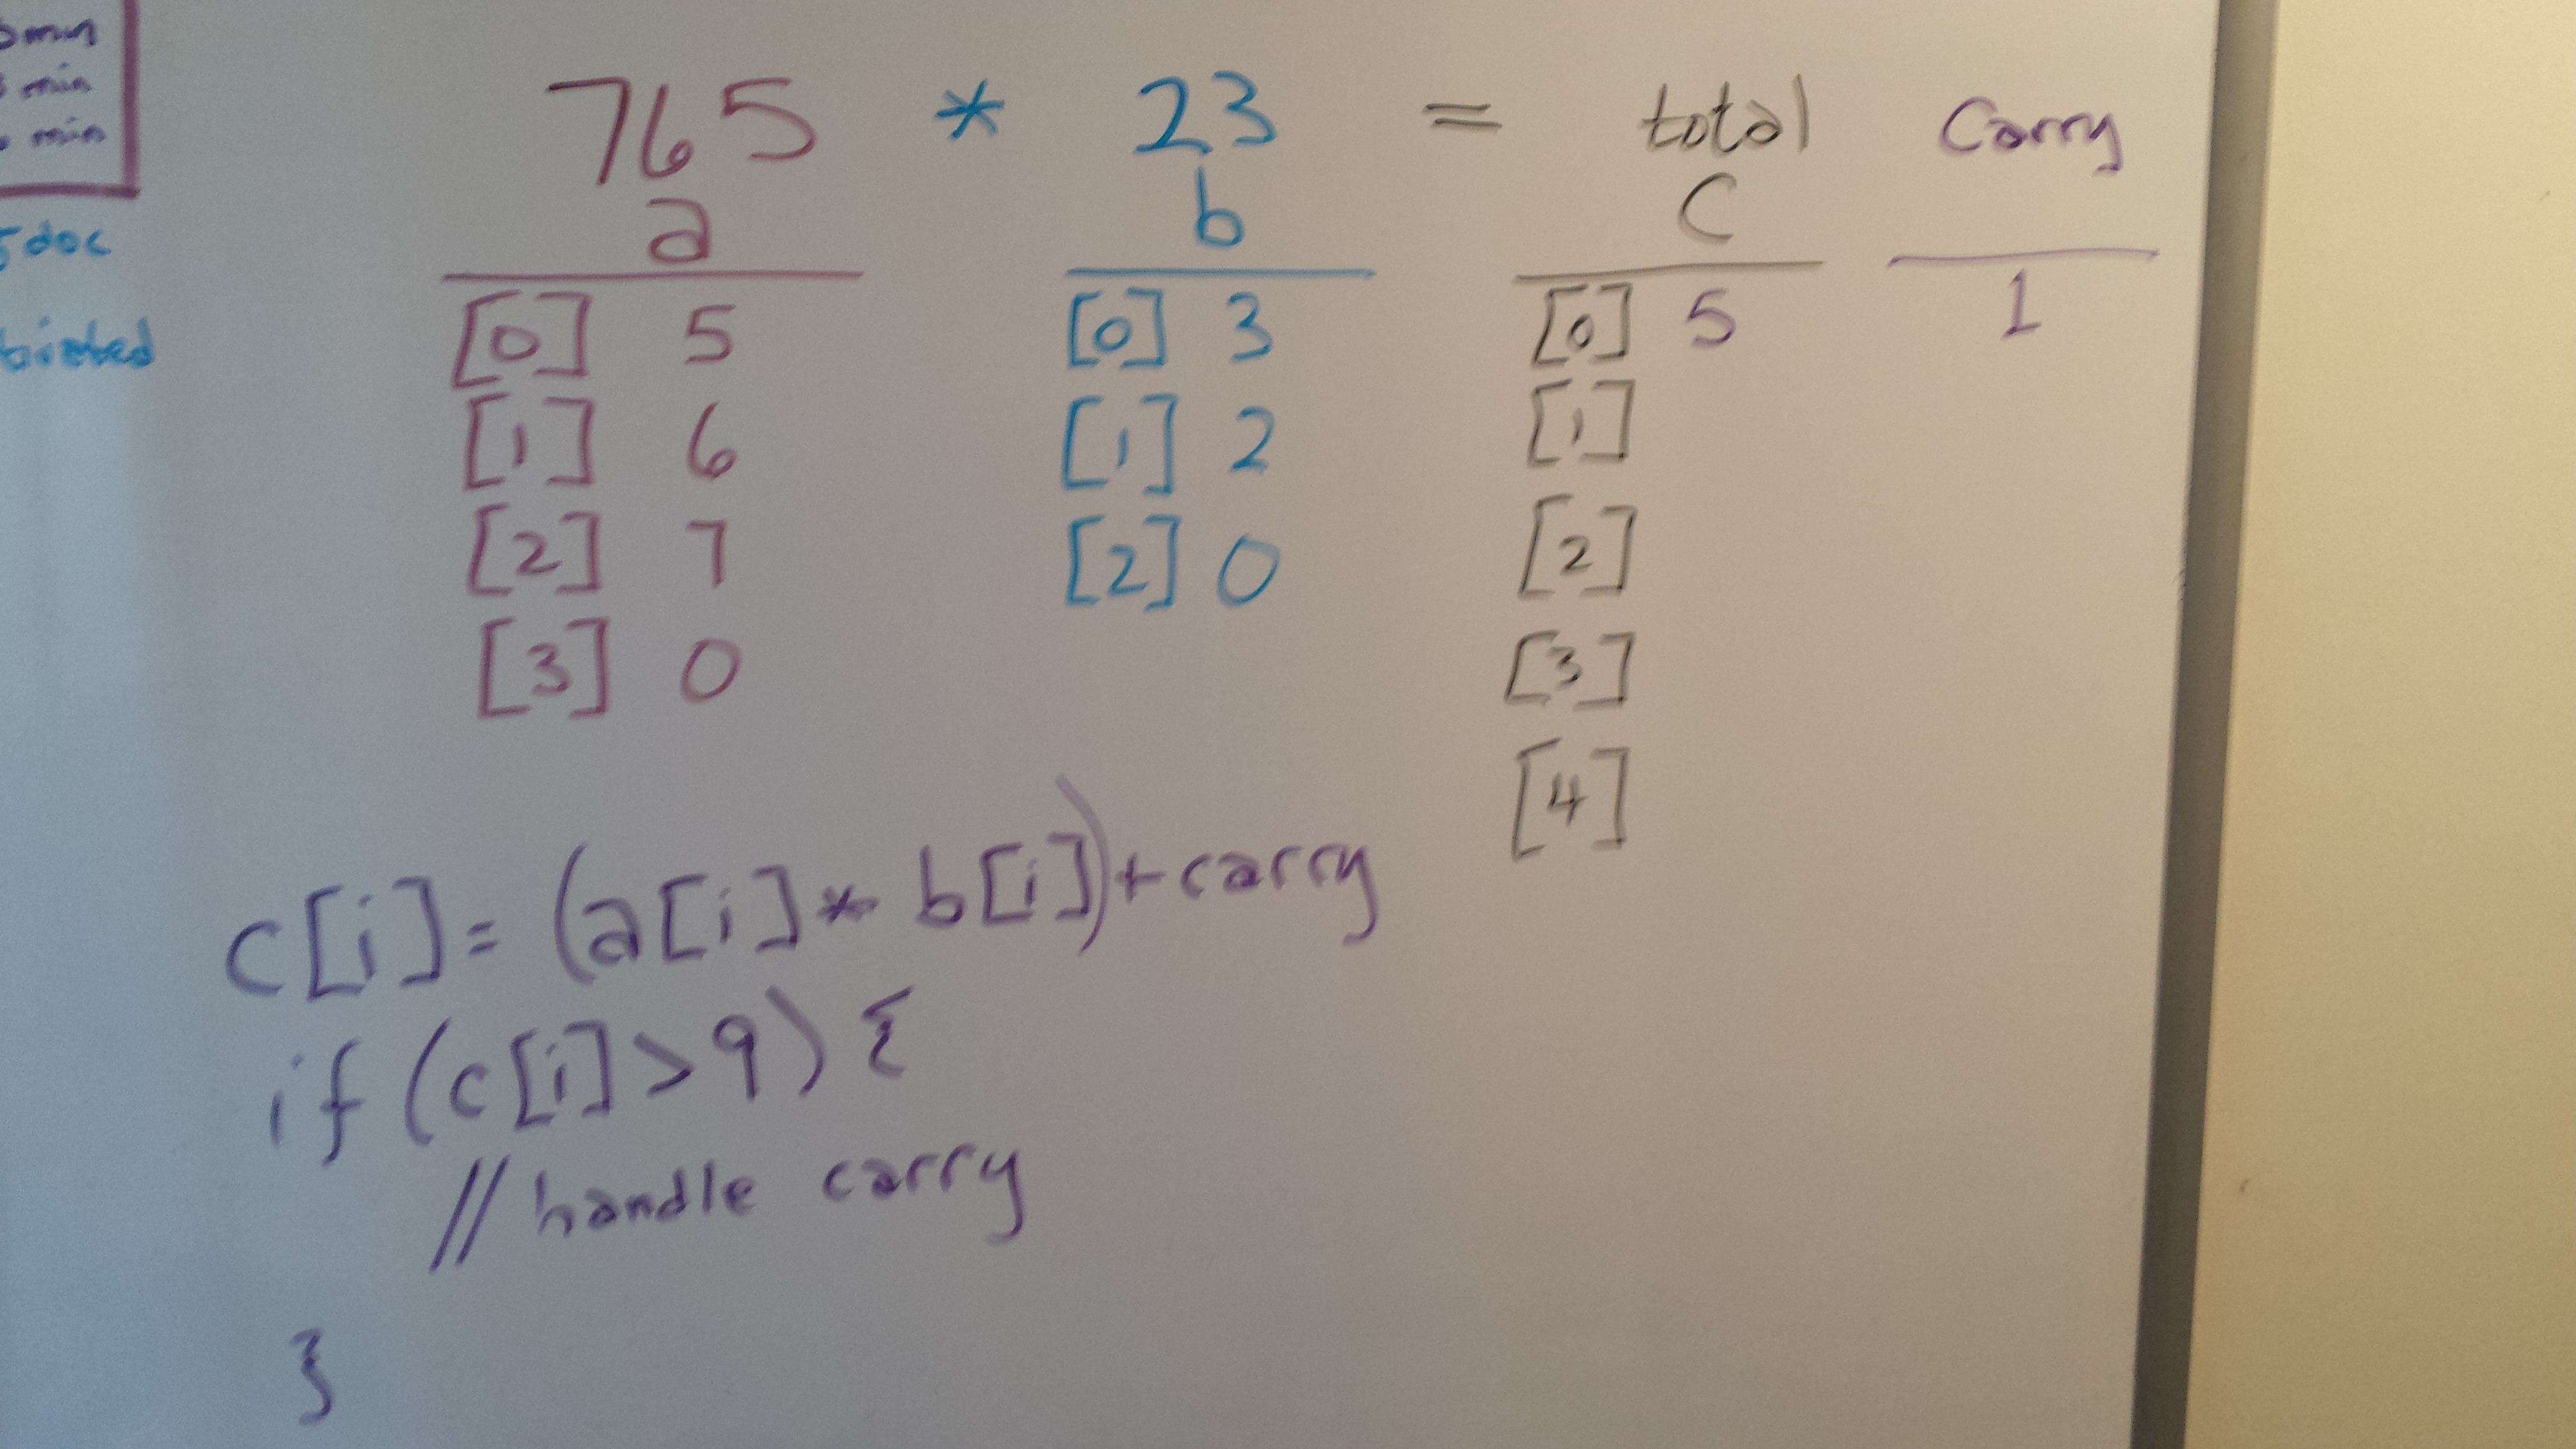 min
min
min
doc
765 * 23 = total Carry
a b C
[0] 5 [0] 3 [0] 5 1
[1] 6 [1] 2 [1]
[2] 7 [2] 0 [2]
[3] 0 [3]
[4]
c[i]= (a[i]* b[i])+carry
if (c[i]>9) {
// handle carry
}